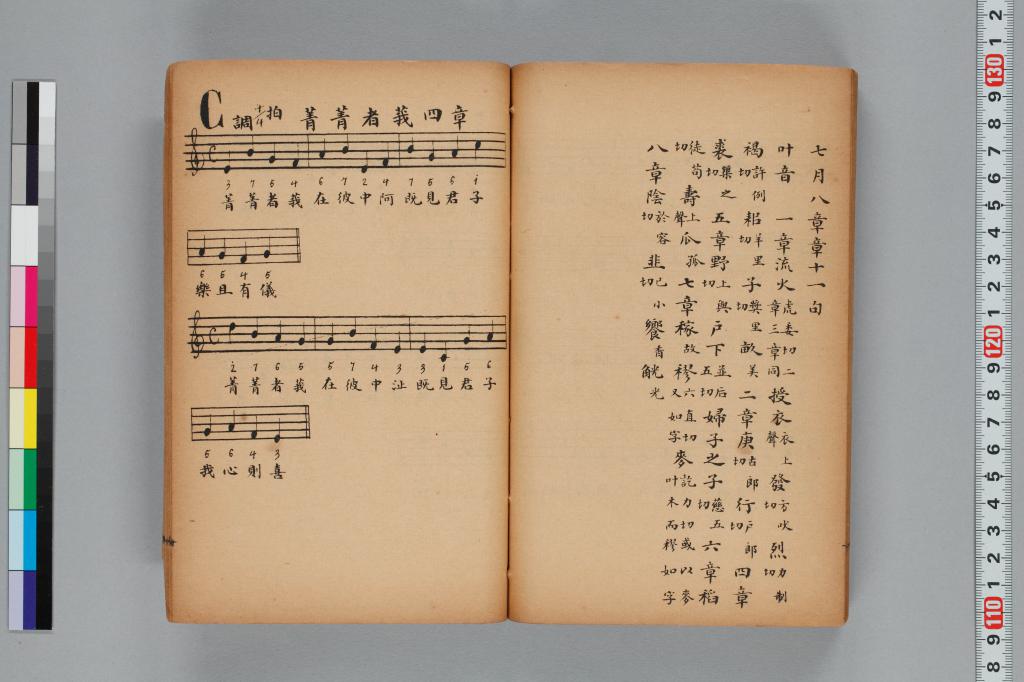 七月八章章十一句
叶音 一章流火虎委切二章三章同 授衣衣上聲 發方吠切 烈力制切
褐許例切 耜羊里切 子獎里切 畝美 二章庚古郎切 行户郎切 四章
裘渠之切 五章野上與切 户下並后五切 婦子之子慈五切 六章稻
徒苟切 壽上聲 瓜孤 七章稼故 穋六直切又如字 麥訖力切或以麥叶木而穋如字
八章陰於容切 韭己小切 饗香 觥光
C調 4/4拍 菁菁者莪四章
3 7 5 4 6 7 2 4 7 5 6 i
菁菁者莪在彼中阿既見君子
6 5 4 5
樂且有儀
2 7 6 5 5 7 4 3 3 1 5 6
菁菁者莪在彼中沚既見君子
5 6 4 3
我心則喜